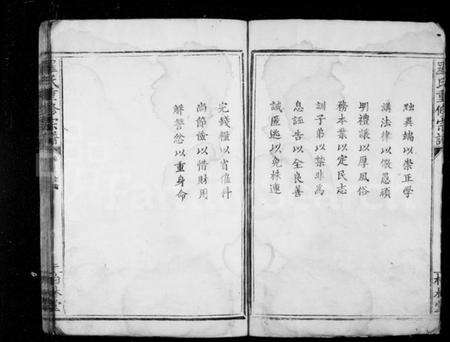 氏重修宗譜
黜異端以崇正學
講法律以儆愚頑
明禮讓以厚風俗
務本業以定民志
訓子弟以禁非為
息誣告以全良善
誡匿逃以免株連
完錢糧以省催科
尚節儉以惜財用
解讐忿以重身命